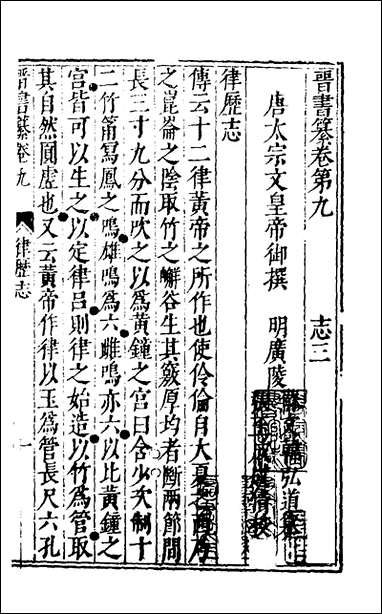 晉書纂卷第九　志三
唐太宗文皇帝御撰　明廣陵
弘道
律歷志
傳云十二律黃帝之所作也使伶倫自大夏之西
之崑崙之陰取竹之嶰谷生其竅厚均者斷兩節間
長三寸九分而吹之以爲黃鐘之宮曰含少次制十
二竹筩寫鳳之鳴雄鳴爲六雌鳴亦六以比黃鐘之
宮皆可以生之以定律呂則律之始造以竹爲管取
其自然圓虛也又云黃帝作律以玉爲管長尺六孔
晉書纂卷九　律歷志　一